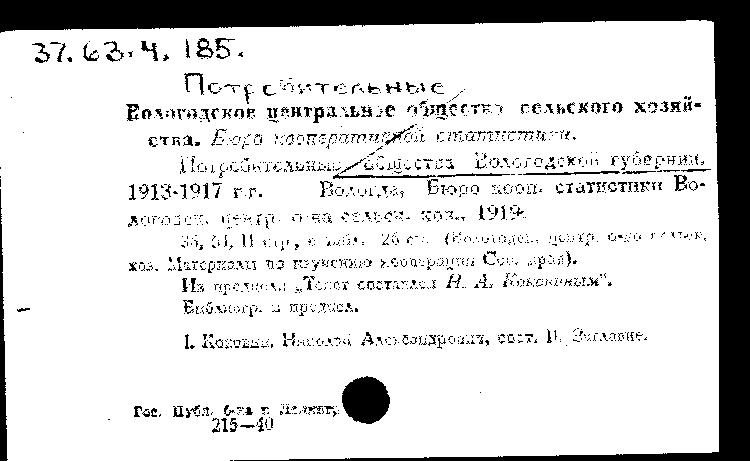 37.63.4.185.
Потребительные
Вологодское центральное общество сельского хозяй-
ства. Бюро кооперативной статистики.
Потребительные общества Вологодской губернии.
1913-1917 г.г. Вологда, Бюро кооп. статистики Во-
логодск. центр. о-ва сельск. хоз., 1919.
51, II стр., с табл. 26 см. (Вологодск. центр. о-во сельск.
хоз. Материалы по изучению кооперации Сев. края).
Из предисл: „Текст составлен Н. А. Коковиным".
Библиогр. в предисл.
I. Коковин, Николай Александрович, сост. II. Заглавие.
Гос. Публ. б-ка в Ленингр.
215—40